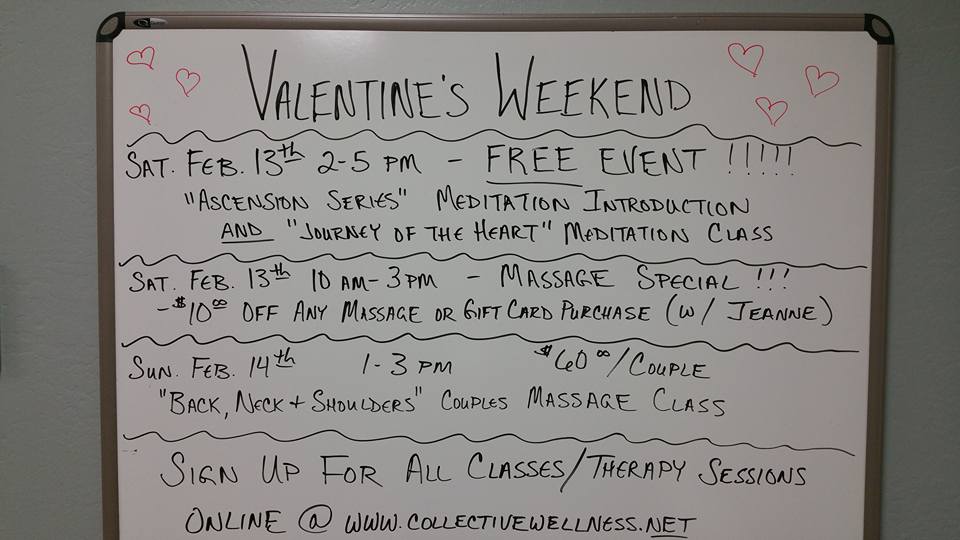 VALENTINE'S WEEKEND
SAT. FEB. 13th 2-5 PM - FREE EVENT !!!!!
"ASCENSION SERIES" MEDITATION INTRODUCTION
AND "JOURNEY OF THE HEART" MEDITATION CLASS
SAT. FEB. 13th 10 AM - 3 PM - MASSAGE SPECIAL !!!
- $10 00 OFF ANY MASSAGE OR GIFT CARD PURCHASE (W/ JEANNE)
SUN. FEB. 14th 1-3 PM $60 00/COUPLE
"BACK, NECK + SHOULDERS" COUPLES MASSAGE CLASS
SIGN UP FOR ALL CLASSES/THERAPY SESSIONS
ONLINE @ WWW.COLLECTIVEWELLNESS.NET